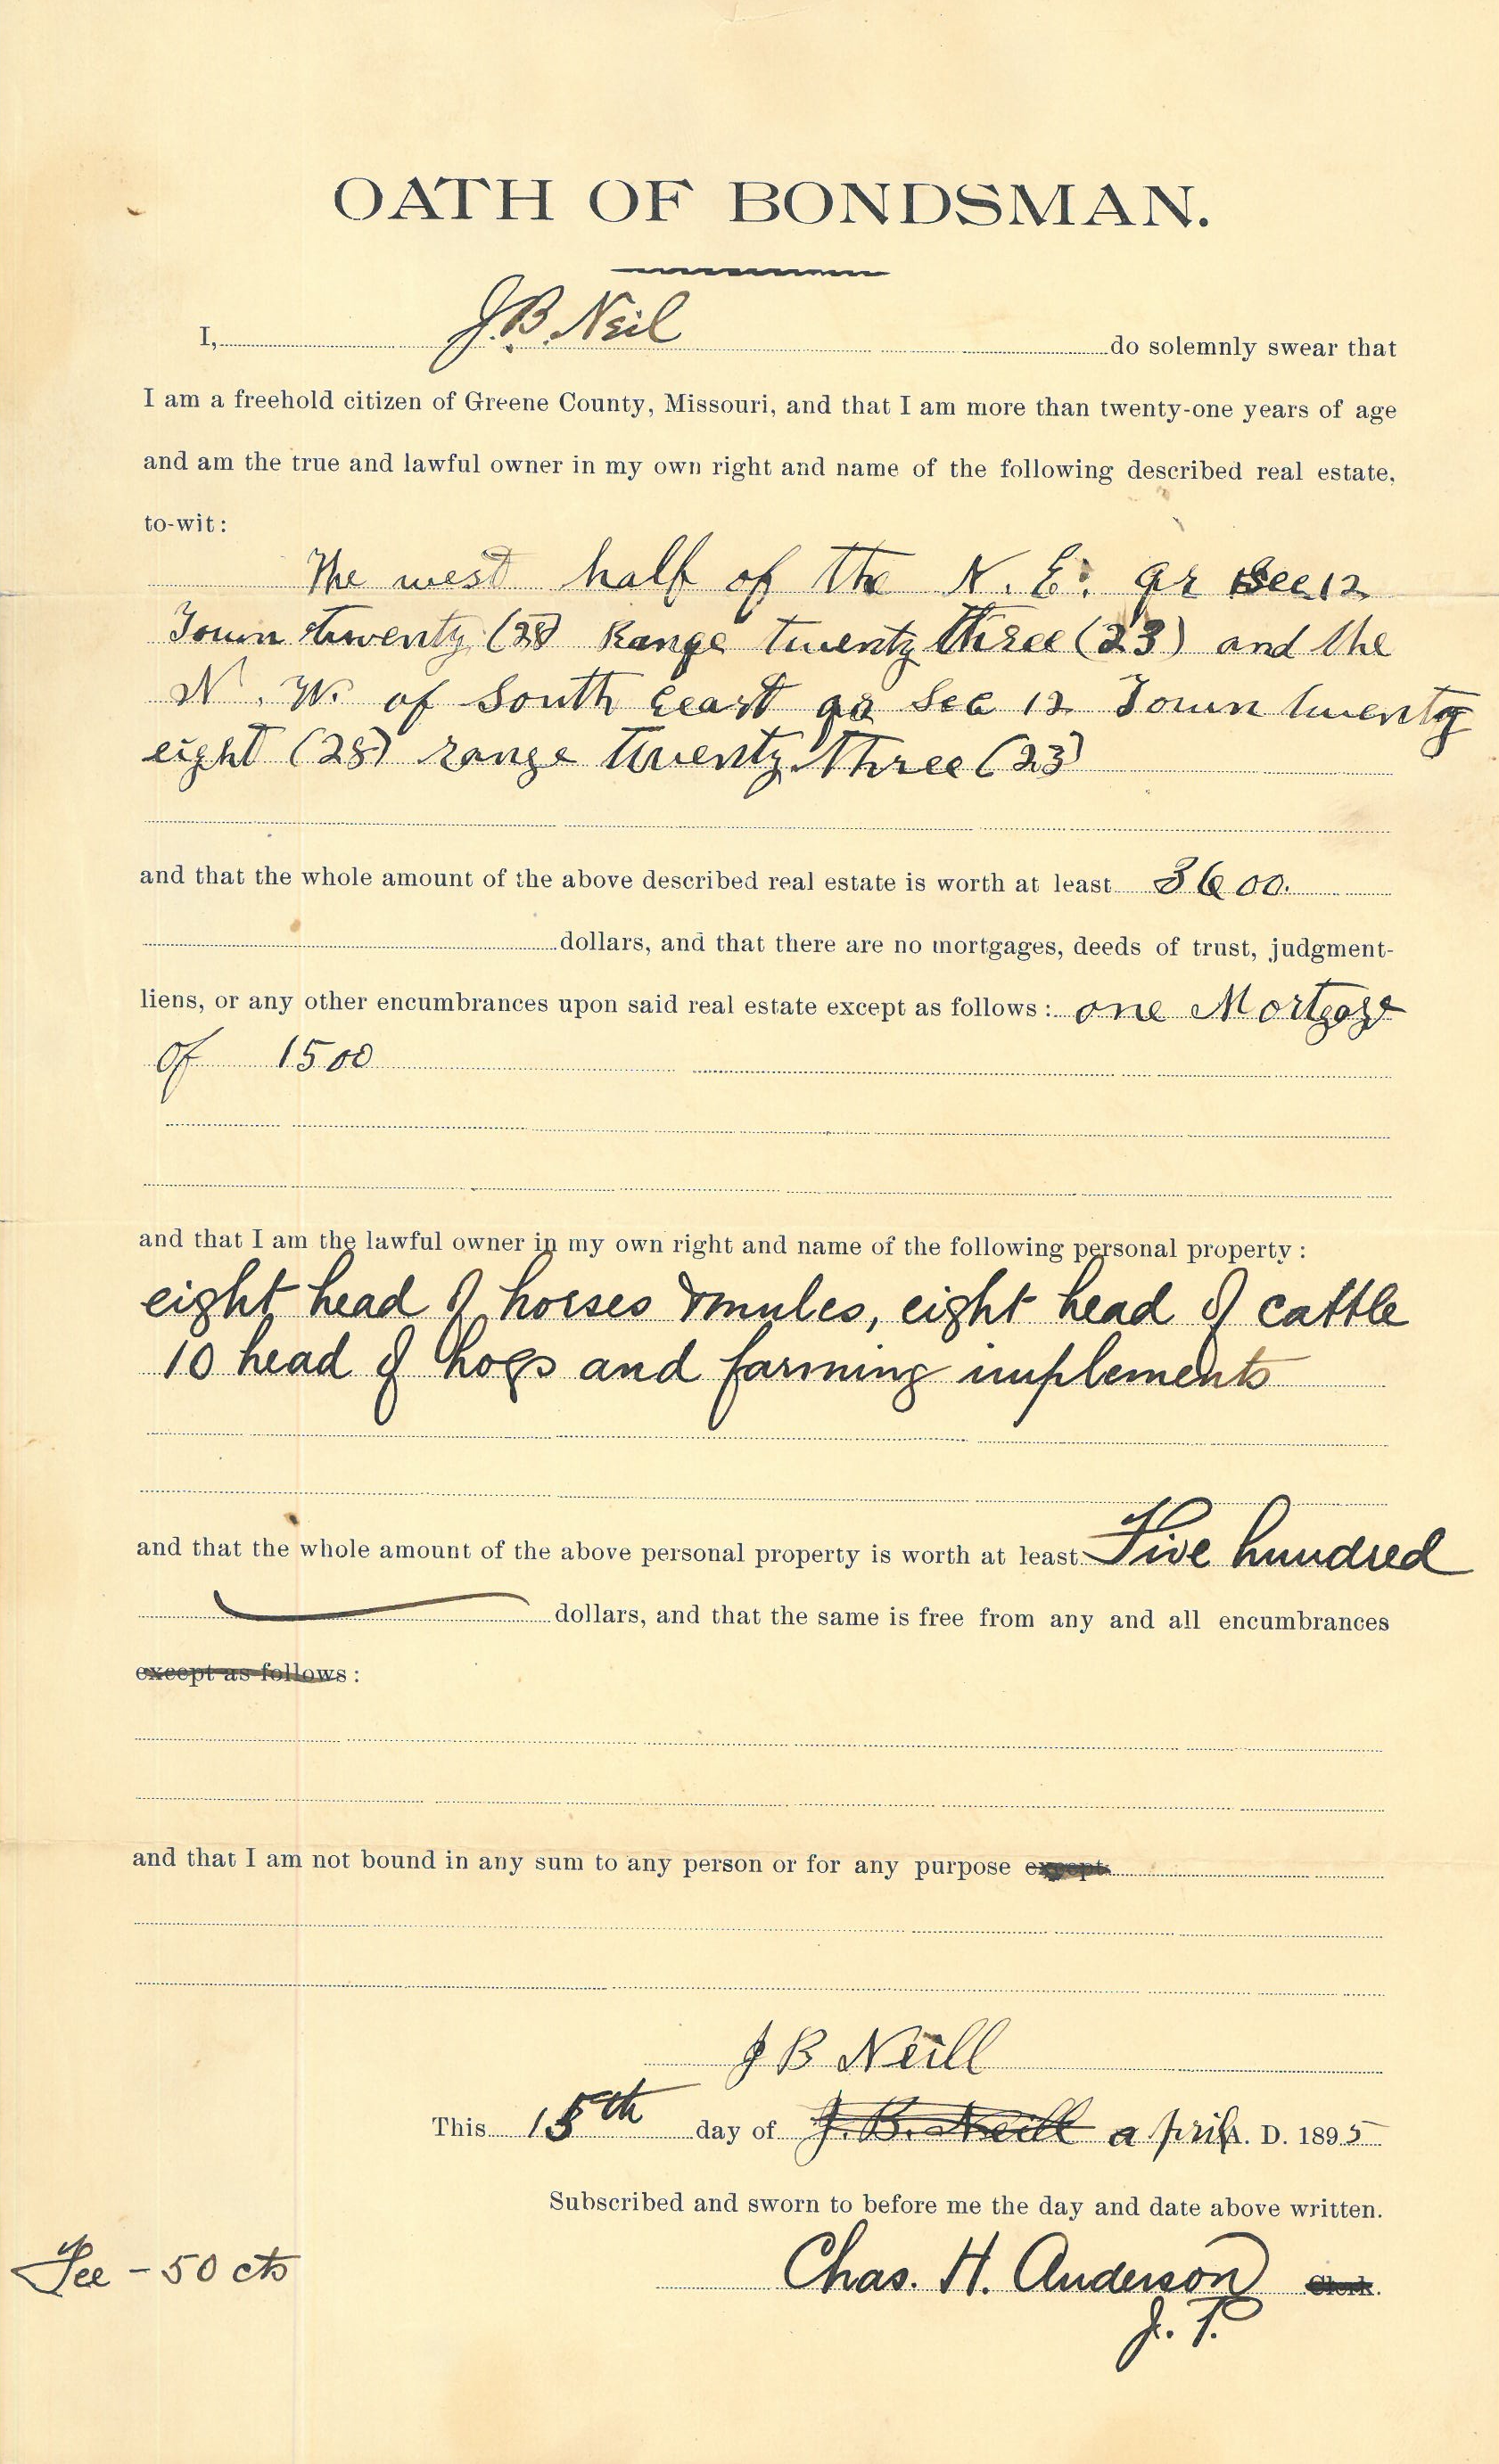 OATH OF BONDSMAN.
I, J. B. Neil do solemnly swear that
I am a freehold citizen of Greene County, Missouri, and that I am more than twenty-one years of age
and am the true and lawful owner in my own right and name of the following described real estate,
to-wit:
The west half of the N. E. qr Sec 12
Town twenty (28) Range twenty three (23) and the
N. W. of South east qr Sec 12 Town twenty
eight (28) range twenty three (23)
and that the whole amount of the above described real estate is worth at least 3600.
dollars, and that there are no mortgages, deeds of trust, judgment-
liens, or any other encumbrances upon said real estate except as follows: one Mortgage
of 1500
and that I am the lawful owner in my own right and name of the following personal property:
eight head of horses & mules, eight head of cattle
10 head of hogs and farming implements
and that the whole amount of the above personal property is worth at least Five hundred
dollars, and that the same is free from any and all encumbrances
except as follows:
and that I am not bound in any sum to any person or for any purpose except
J B Neill
This 15th day of J. B. Neill April A. D. 1895
Subscribed and sworn to before me the day and date above written.
Fee - 50 cts Chas. H. Anderson Clerk.
J. P.